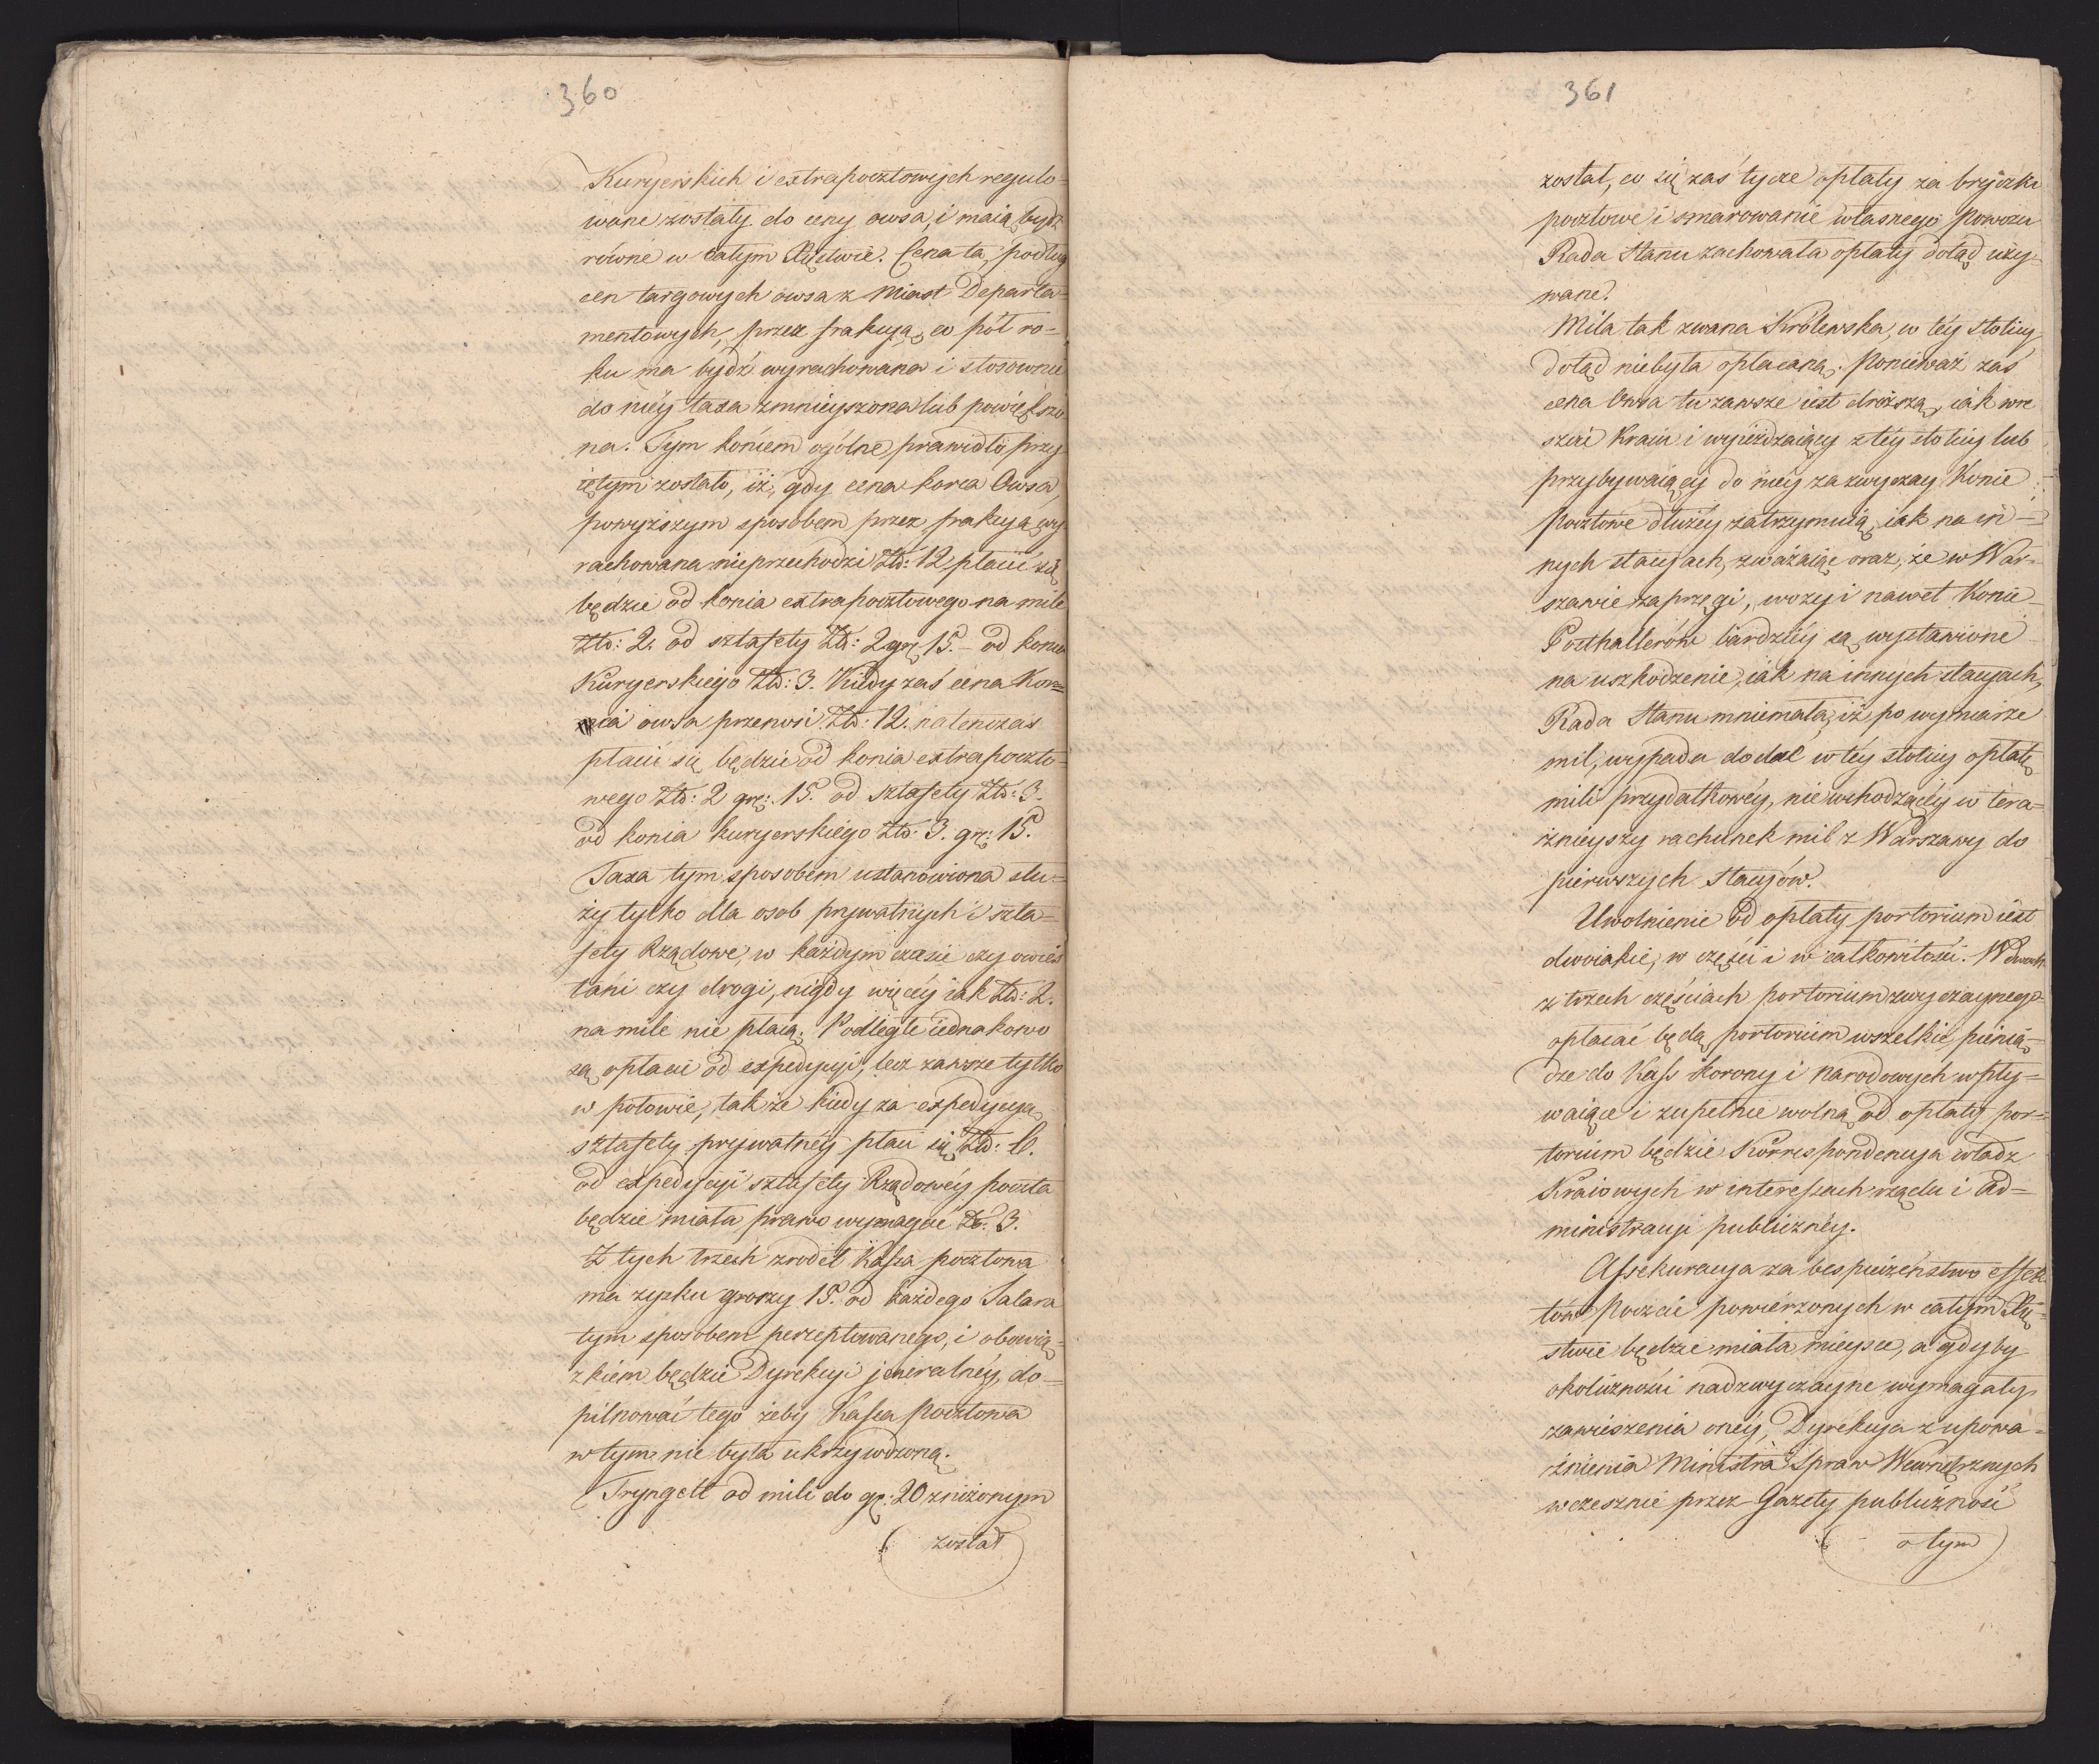 360
Kuryerskich i extrapocztowych regulo=
wane zostały do ceny owsa, i maią bydź
równe w całym Xięstwie. Cena ta, podług
cen targowych owsa z Miast Departa=
mentowych, przez frakcyą, co pół ro=
ku ma bydź wyrachowana i stosownie
do niéy taxa zmnieyszona lub powiększo
na. Tym końcem ogólne prawidło przy
iętym zostało, iż, gdy cena korca Owsa,
powyższym sposobem przez frakcyą wy
rachowana nieprzechodzi Złt: 12, płacić się
będzie od konia extrapocztowego na milę
Złt: 2. od sztafety Złt: 2 gr: 15. – od konia
Kuryerskiego Złt: 3. Kiedy zaś cena Kor=
ca owsa przenosi Złt: 12. natenczas
płacić się będzie od konia extrapoczto=
wego Złt: 2 gr: 15. od Sztafety Złt: 3.
od konia kuryerskiego Złt: 3. gr: 15.
Taxa tym sposobem ustanowiona słu=
ży tylko dla osob prywatnych i szta=
fety Rządowe, w każdym czasie czy owies
tani czy drogi, nigdy więcéy iak Złt: 2.
na milę nie płacą. Podległe iednakowo
są opłacie od expedycyi, lecz zawsze tylko
w połowie, tak że kiedy za expedycyą
sztafety prywatnéy płaci się Złt: 6.
od expedycyi sztafety Rządowéy poczta
będzie miała prawo wymagać Zł: 3.
Z tych trzech zrodeł Kassa pocztowa
ma zysku groszy 15. od każdego Talara
tym sposobem perceptowanego, i obowią=
zkiem będzie Dyrekcyi jeneralnéy do=
pilnować tego żeby Kassa Pocztowa
w tym nie była ukrzywdzoną.
Tryngelt od mili do gr: 20 zniżonym
został
361
został, co się zaś tycze opłaty za bryczki
pocztowe i smarowanie własnego Powozu
Rada Stanu zachowała opłaty dotąd uży=
wane.
Mila tak zwana Królewska, w téy Stolicy
dotąd niebyła opłacaną. Ponieważ zaś
cena Owsa tu zawsze iest droższą, iak w re
szcie Kraiu i wyieżdzaiący z téy stolicy lub
przybywaiący do niéy zazwyczay Konie
Pocztowe dłużéy zatrzymuią iak na in=
nych stacyach, zważaiąc oraz, że w War=
szawie zaprzęgi, wozy i nawet Konie
Poczthalterów bardziéy są wystawione
na uszkodzenie, iak na innych stacyach,
Rada Stanu mniemała, iż po wymiarze
mil, wypada dodać w téy stolicy opłatę
mili przydatkowéy, nie wchodzącéy w tera=
źnieyszy rachunek mil z Warszawy do
pierwszych Stacyów.
Uwolnienie od opłaty portorium iest
dwoiakie, w części i w całkowitości. W dwoch
z trzech częściach portorium zwyczaynego
opłacać będą portorium wszelkie pienią=
dze do Kass Korony i narodowych wpły=
waiące i zupełnie wolną od opłaty por=
torium będzie Korrespondencya władz
Kraiowych w interessach rządu i ad=
ministracyi publicznéy.
Assekuracya za bespieczeństwo effek
tów Poczcie powierzonych w całym Xię=
stwie będzie miała mieysce, a gdyby
okoliczności nadzwyczayne wymagały
zawieszenia onéy, Dyrekcya z upowa=
żnienia Ministra Spraw Wewnętrznych
wcześnie przez Gazety publiczność
o tym